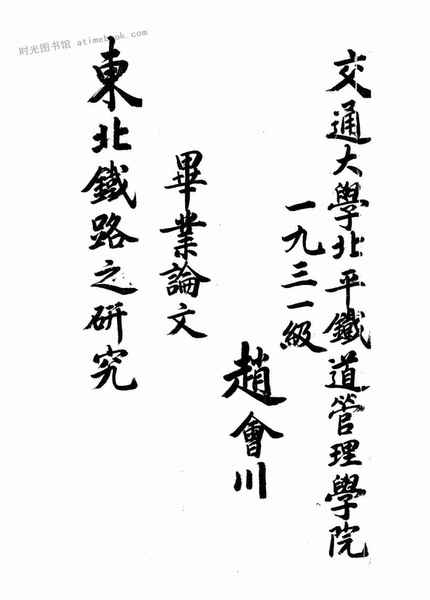 时光图书馆 atimebook.com
交通大學北平鐵道管理學院
一九三一級
趙會川
畢業論文
東北鐵路之研究